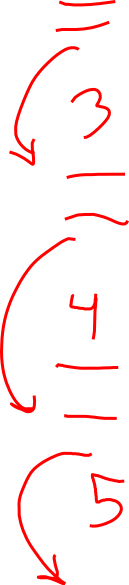 =
3
=
4
=
5